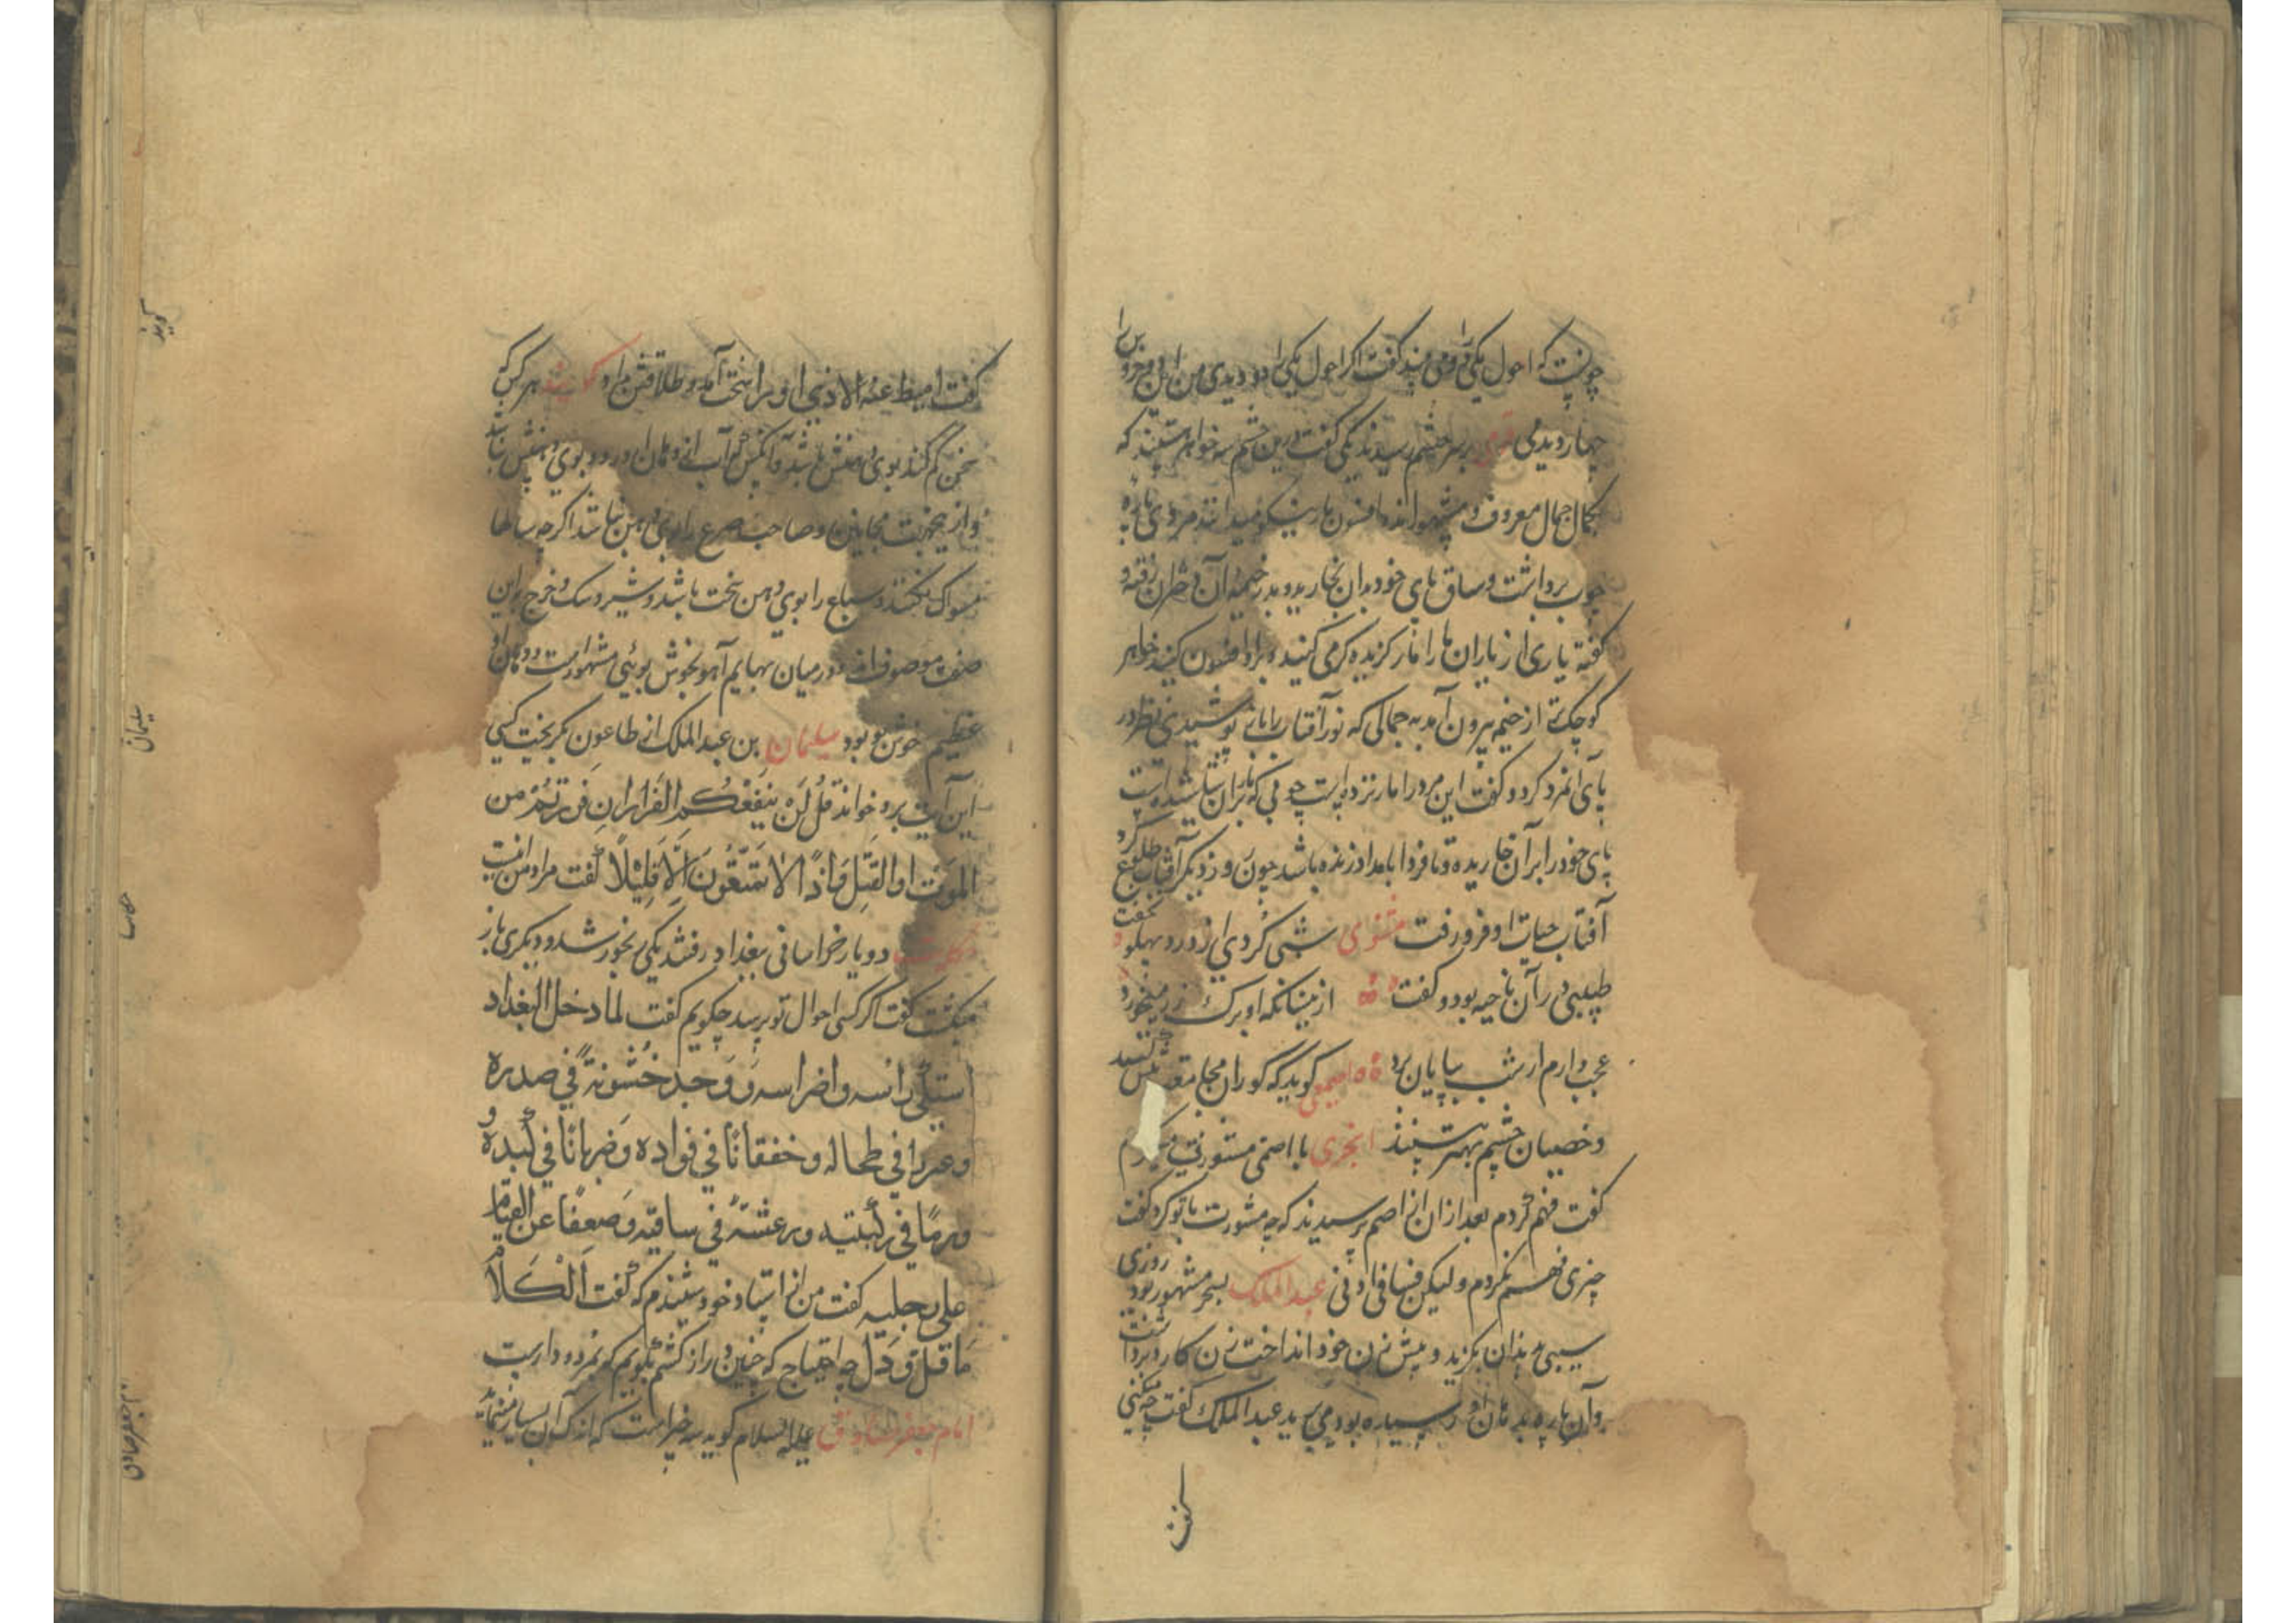 چونست که احول یکی را دو می بیند گفت اگر احول یکی را دو دیدی من این دو خروس را
چهار دیدمی قومی بر سر چشمه رسیدند یکی گفت درین چشمه سه خواهر هستند که
بکمال جمال معروف و مشهوراند و افسون مار نیکو میدانند مردی پاره
چوب برداشت و ساق پای خود بدان بخارید و بدر خیمه آن دختران رفته و
گفته یاری از یاران ما را مار گزیده کرمی کنید و براو افسون کنید خواهر
کوچک تر از خیمه بیرون آمد به جمالی که نور آفتاب را باز پوشیدی نظر در
پای آنمرد کرد و گفت این مرد را مار نزده است چوبی که مار بران شاشیده است
پای خود را بران خاریده و تا فردا بامداد زنده باشد چون روز دیگر آفتاب طلوع کرد
آفتاب حیات او فرو رفت مثنوی شبی کردی از درد پهلو نخفت
طبیبی در آن ناحیه بود و گفت ازینسانکه او برک رز میخورد
عجب دارم ار شب بپایان برد اصمعی گوید که کوران مجامعت بیش کنند
و خصیان چشم بهتر بینند ابحری با اصمی مشورتی میکردم
گفت فهم کردم بعد ازان از اصم پرسیدند که چه مشورت با تو کرد گفت
چیزی فهم نکردم ولیکن فسا فی اذنی عبد الملک ببخر مشهور بود روزی
سیبی بدندان بگزید و پیش زن خود انداخت زن کارد برداشت
و آن پاره که بدندان او رسیده بود می برید عبد الملک گفت چه میکنی
گفت
گفت امیط عنه الاذی او را سخت آمد و طلاقش داد گویند هر کس که
سخن کم کند بوی دهنش باشد و آنکس که آب از دهان او رود بوی دهنش نباشد
و از این جهت مجانین و صاحب صرع را بوی دهن نباشد اگر چه سالها
مسواک نکنند و سباع را بوی دهن سخت باشد و شیر و سک و خرج باین
صفت موصوف اند و در میان بهایم آهو بخوش بوئی مشهور است و دهان او
عظیم خوش بو بود سلیمان بن عبد الملک از طاعون بگریخت کسی
این آیت برو خواند قل لن ینفعکم الفرار ان فررتم من
الموت او القتل و اذا لا تمتعون الا قلیلا گفت مراد من انست
حکایت دو یار خراسانی ببغداد رفتند یکی رنجور شد و دیگری باز
میگشت گفت اگر کسی احوال تو پرسد چکویم گفت لما دخل البغداد
اشتکی رأسه و اضراسه و وجد خشونة فی صدره
و ضررا فی طحاله و خفقانا فی فواده و ضربانا فی کبده و
ورما فی رکبتیه و رعشة فی ساقیه و ضعفا عن القیام
علی رجلیه گفت من از استاد خود شنیدم که گفت الکلام
ما قل و دل چه احتیاج که چنین دراز کشم بگویم که بمرد و وارست
امام جعفر صادق علیه السلام گوید سه چیز است که اندک آن بسیار مینماید
گویند
سلیمان
حکایت
امام جعفر صادق